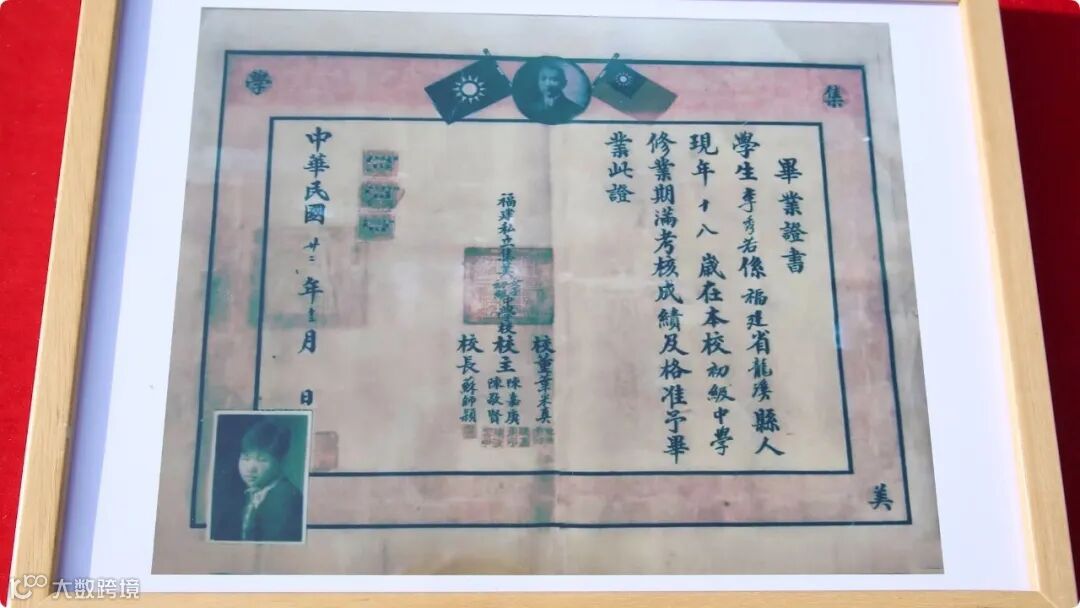 集
美
學
畢業證書
學生李秀若係福建省龍溪縣人
現年十八歲在本校初級中學
修業期滿考核成績及格准予畢
業此證
福建私立集美初級中學校
校董葉采真
校主陳嘉庚
陳敬賢
校長蘇師穎
中華民國廿二年 月 日
大数跨境